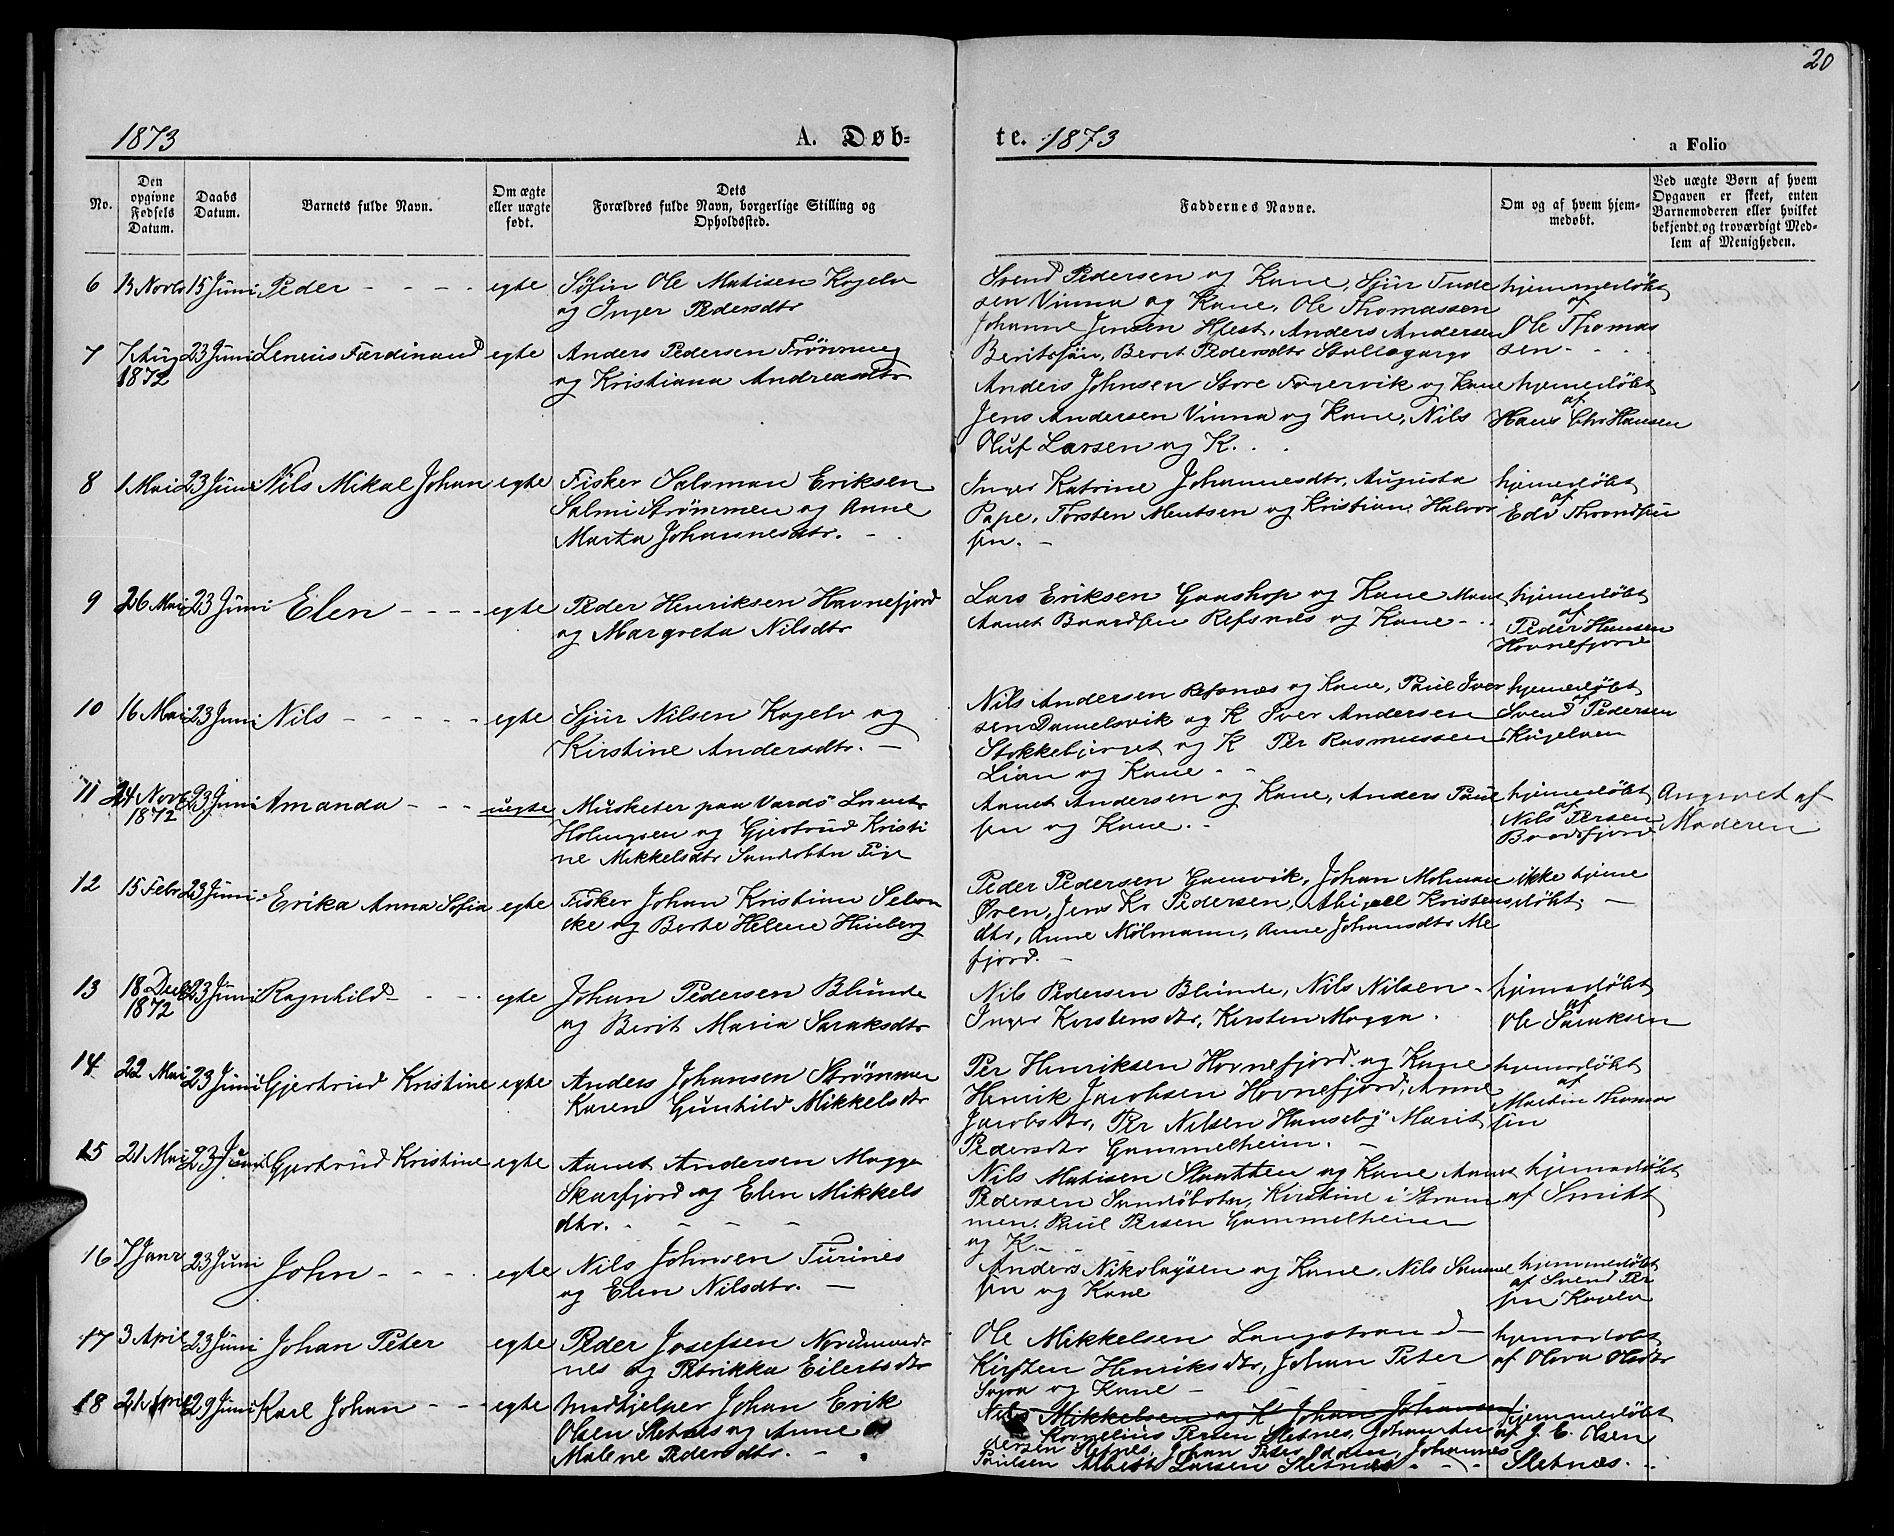 20
1873
A. Døb-
te. 1873
a Folio
No.
Den opgivne Fødsels Datum.
Daabs Datum.
Barnets fulde Navn.
Om ægte eller uægte født.
Dets Forældres fulde Navn, borgerlige Stilling og Opholdssted.
Faddernes Navne.
Om og af hvem hjem-
medøbt.
Ved uægte Børn af hvem
Opgaven er skeet, enten
Barnemoderen eller hvilket
bekjendt og troværdigt Med-
lem af Menigheden.
6 13 Novb 15 Juni Peder - - - - egte
Søfin Ole Matisen Kogelv
og Inger Pedersdtr
Svend Pedersen og Kone, Sjur Tude
sen Vinna og Kone, Ole Thomassen
Johanne Jensen Hlest, Anders Andersen
Beritsfon, Berit Pedersdtr Stallogargo
hjemmedøbt
af
Ole Thomas
sen - - .
7 7 Aug 23 Juni Leneus Ferdinand egte
1872
Anders Pedersen Trønning
og Kristiana Andreasdtr
Anders Johnsen Store Fagervik og Kone
Jens Andersen Vinna og Kone, Nils
Oluf Larsen og K. . .
hjemedøbt
af
Hans Chr Hansen
8 1 Mai 23 Juni Nils Mikal Johan egte
Fisker Salomon Eriksen
Salmi Strømmen og Anne
Marta Johannesdtr. - .
Inger Katrine Johannesdtr, Augusta
Pape, Torsten Mentsen og Kristian Halvor
sen. -
hjemedøbt
af
Edv Throndsen
9 26 Mai 23 Juni Elen - - - - egte
Peder Henriksen Havnefjord
og Margreta Nilsdtr
Lars Eriksen Gaashop og Kone
Aanet Baardsen Refsnes og Kone - .
hjemedøbt
af
Peder Hansen
Hovnefjord
10 16 Mai 23 Juni Nils - - - - - egte
Sjur Nilsen Kogelv og
Kirstine Andersdtr. -
Nils Andersen Refsnæs og Kone, Paul Iver
sen Danielsvik og K Iver Andersen
Stokkebjerget og K Per Rasmussen
Lian og Kone - -
hjemedøbt
af
Svend Pedersen
Kogelven
11 24 Novb 23 Juni Amanda - - - uegte
1872
Musketer paa Vardø Lorents
Holmgsen og Gjertrud Kristi
ne Mikkelsdtr Sandobtn Pige
Aanet Andersen og Kone, Anders Paul
sen og Kone. -
hjemedøbt
af
Nils Persen
Baadsfjord
Angivet af
Moderen
12 15 Febr 23 Juni Erika Anna Sofia egte
Fisker Johan Kristian Selvn
cke og Berte Helene Hinberg
Peder Pedersen Gamvik, Johan Molman
Øren, Jens Kr Pedersen, Abigael Kristens
dtr, Anne Mølmann, Anne Johansdtr Me
fjord. -
ikke hjeme
døbt. -
13 18 Decb 23 Juni Ragnhild - - - - egte
1872
Johan Pedersen Blinde
og Berit Maria Saraksdtr
Nils Pedersen Blinde, Nils Nilsen -
Inger Kerstensdtr, Kersten Mogga .
hjemedøbt
af
Ole Saraksen
14 22 Mai 23 Juni Gjertrud Kristine egte
Anders Johansen Strømmen
Karen Gunhild Mikkelsdtr
Per Henriksen Hovnefjord og Kone
Henrik Jacobsen Hovnefjord, Anne
Jacobsdtr, Per Nilsen Hanseby Marit
Pedersdtr Gammelheim. -
hjemedøbt
af
Martin Thomas
sen
15 21 Mai 23 Juni Gjertrud Kristine egte
Aanet Andersen Mogga
Skarfjord og Elen Mikkels
dtr. - - - -
Nils Matisen Slaatten og Kone Aanet
Pedersen Sandøbotn, Kirstine i Strøm
men, Paul Persen Gammelheim
og K. - -
hjemedøbt
af Smitt
16 7 Janr 23 Juni John - - - . egte
Nils Johnsen Turines
og Elen Nilsdtr. -
Anders Nikolaysen og Kone, Nils Samuel
sen og Kone
hjemmedøbt
af Svend Per
sen Kogelv
17 3 April 23 Juni Johan Peter egte
Peder Josefsen Nordmand-
nes og Petrikka Eilertsdtr
Ole Mikkelsen Langstrand -
Kirsten Henriksdtr, Johan Peter
og Kone -
hjemedøbt
af Olava Olsdtr
18 21 April 29 Juni Karl Johan - - - egte
Madhjelper Johan Erik
Olsen Sletnes og Anne
Malene Pedersdtr. - .
Nils Mikkelsen og K Johan Johansen
Kornelius Persen Sletnes, Johan An
dersen Sletnes, Johan Peter Odden, Johannes
Paulsen Albert Larsen Sletnes - - -
hjemmedøbt
af J. E. Olsen
Sletnæs. -